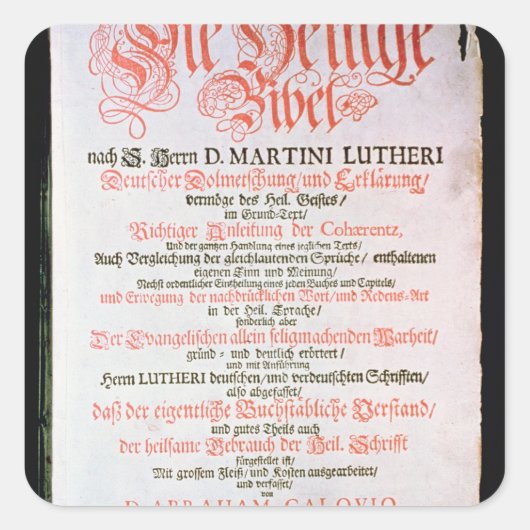 Die Heilige
Bibel
nach S. Herrn D. MARTINI LUTHERI
Deutscher Dolmetschung/und Erklärung/
vermöge des Heil. Geistes/
im Grund-Text/
Richtiger Anleitung der Cohærentz,
Und der gantzen Handlung eines jeglichen Texts/
Auch Vergleichung der gleichlautenden Sprüche/ enthaltenen
eigenen Sinn und Meinung/
Nechst ordentlicher Eintheilung eines jeden Buches und Capitels/
und Erwegung der nachdrücklichen Wort/und Redens-Art
in der Heil. Sprache/
sonderlich aber
Der Evangelischen allein seligmachenden Warheit/
gründ- und deutlich erörtert/
und mit Anführung
Herrn LUTHERI deutschen/und verdeutschten Schrifften/
also abgefasset/
daß der eigentliche Buchstäbliche Verstand/
und gutes Theils auch
der heilsame Gebrauch der Heil. Schrifft
fürgestellet ist/
Mit grossem Fleiß/ und Kosten ausgearbeitet/
und verfasset/
von
D. ABRAHAM CALOVIO